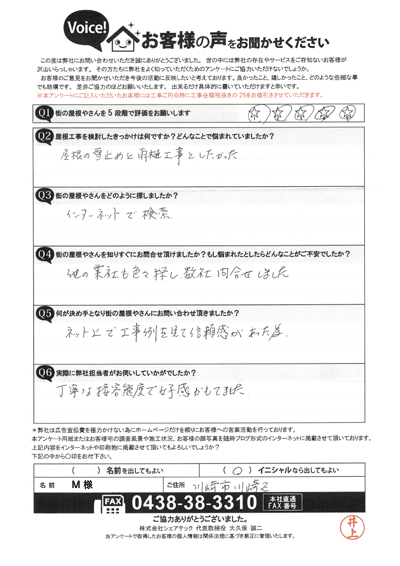 Voice!
お客様の声をお聞かせください
この度は弊社にお問い合わせいただき誠にありがとうございました。世の中には弊社の存在やサービスをご存知ないお客様が
沢山いらっしゃいます。その方たちに弊社をよく知っていただくためのアンケートにご協力いただけないでしょうか。
お客様のご意見をお聞かせいただき今後の活動に反映したいと考えております。良かったこと、嬉しかったこと、どのような些細な事
でも結構です。是非ご協力のほどお願いいたします。出来るだけ具体的に書いていただけますと幸いです。
※本アンケートにご記入いただいたお客様には工事ご用命時に工事金額税抜きの2%をお値引きさせていただきます。
Q1 街の屋根やさんを5段階で評価をお願いします
Q2 屋根工事を検討したきっかけは何ですか?どんなことで悩まれていましたか?
屋根の雪止めと雨樋工事をしたかった
Q3 街の屋根やさんをどのように探しましたか?
インターネットで検索
Q4 街の屋根やさんを知りすぐにお問合せ頂けましたか?もし悩まれたとしたらどんなことがご不安でしたか?
他の業社も色々探し数社問合せしました
Q5 何が決め手となり街の屋根やさんにお問い合わせ頂きましたか?
ネット上で工事例を見て信頼感があった為
Q6 実際に弊社担当者がお伺いしていかがでしたか?
丁寧な接客態度で好感がもてました
*弊社は広告宣伝費を極力かけない為にホームページだけを頼りにお客様への営業活動を行っております。
本アンケート用紙またはお客様宅の調査風景や施工状況、お客様の顔写真を随時ブログ形式のインターネットに掲載させて頂いております。
上記内容をインターネットや印刷物に掲載させて頂いてもよろしいでしょうか?
下記の中から○印をお付け下さい。
( )名前を出してもよい (○)イニシャルなら出してもよい
名前 M様 ご住所 川崎市川崎区
FAX 0438-38-3310 本社直通FAX番号
ご協力ありがとうございました。
株式会社シェアテック 代表取締役 大久保 誠二
当アンケートで取得したお客様の個人情報は関係法規に基づき厳正に管理いたします。
井上